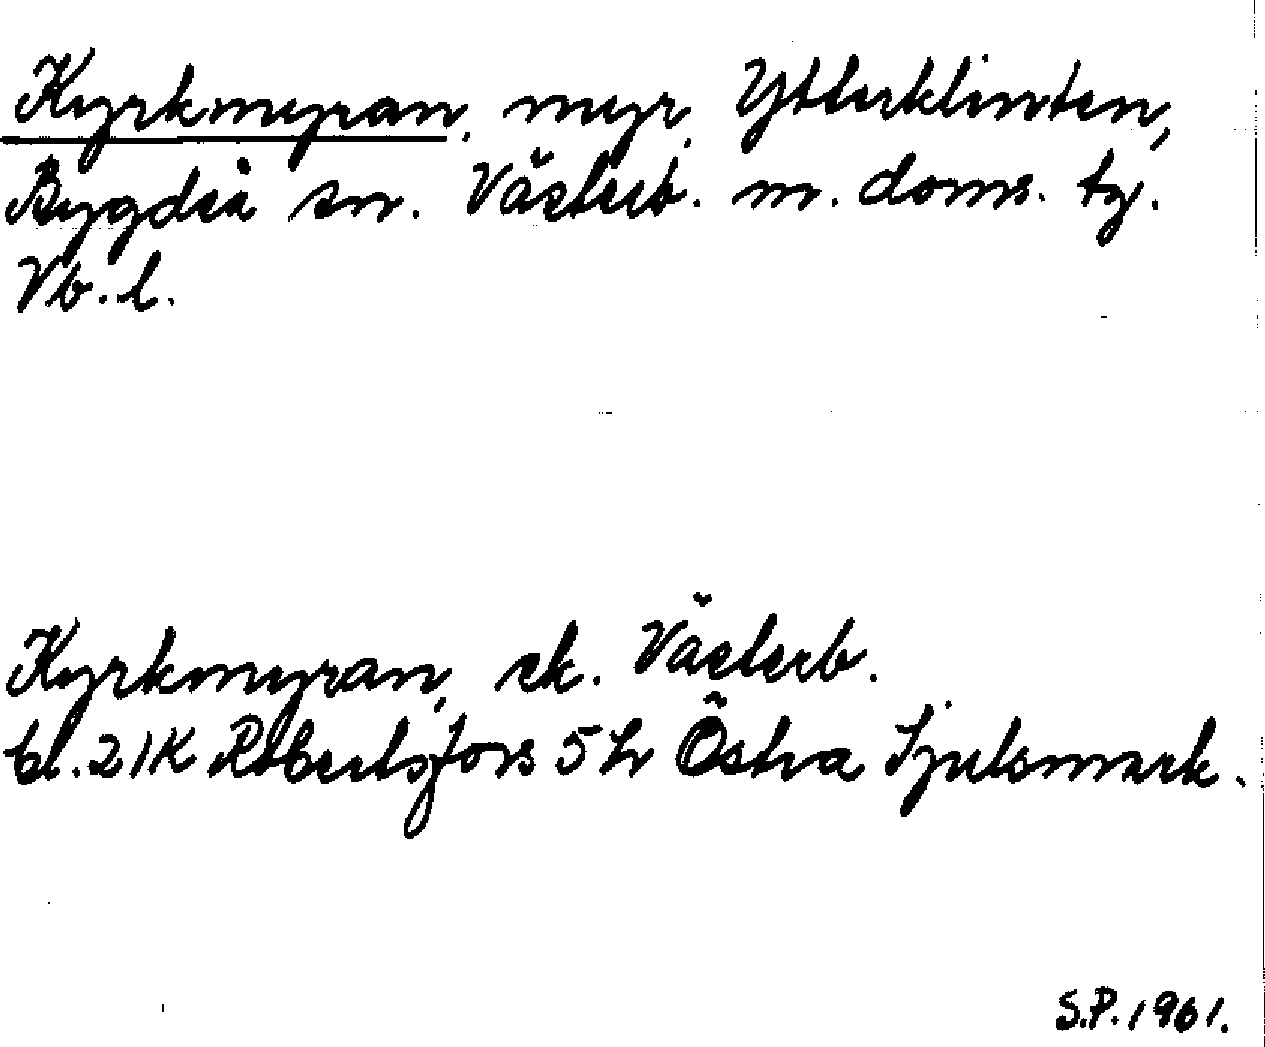 Kyrkmyran, myr, Ytterklinten,
Bygdeå sn. Västerb. m. doms. tg.
Vb. l.
Kyrkmyran, ek. Västerb.
bl. 21K Robertsfors 5 h Östra Sjulsmark.
S.P. 1961.